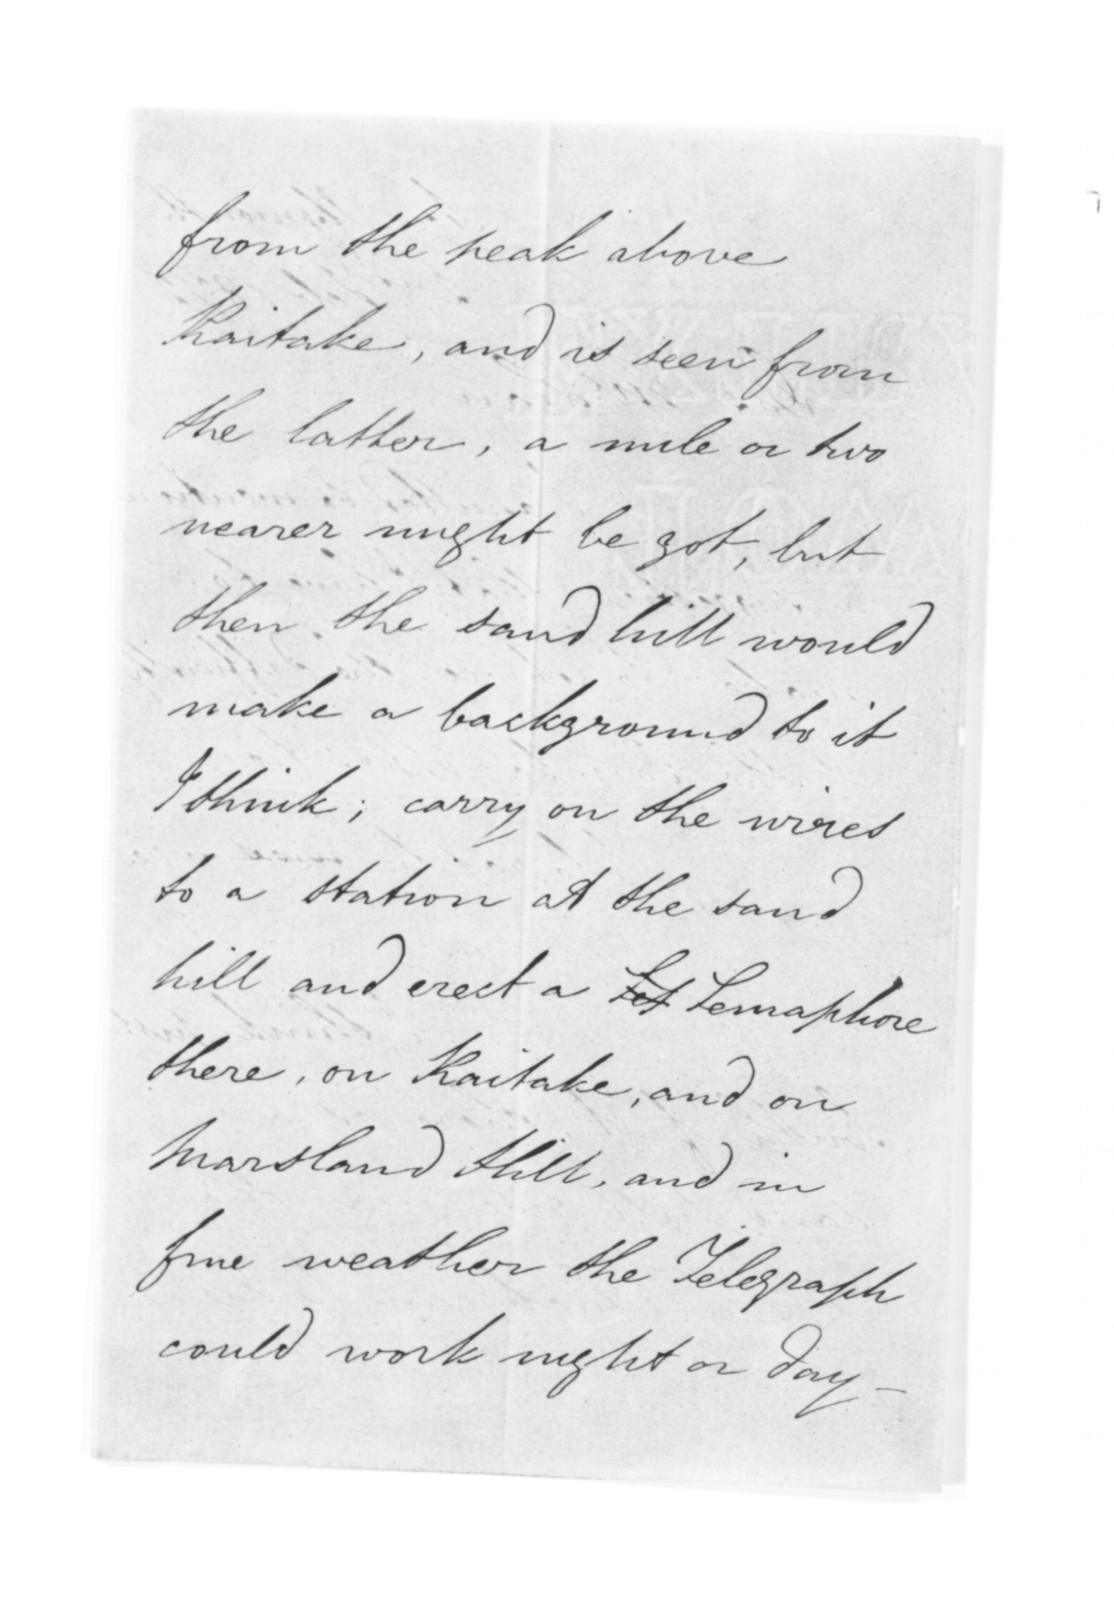 from the peak above
Kaitake, and is seen from
the latter, a mile or two
nearer might be got, but
then the sand hill would
make a background to it
I think; carry on the wires
to a station at the sand
hill and erect a Semaphore
there, on Kaitake, and on
Marsland Hill, and in
fine weather the Telegraph
could work night or day —